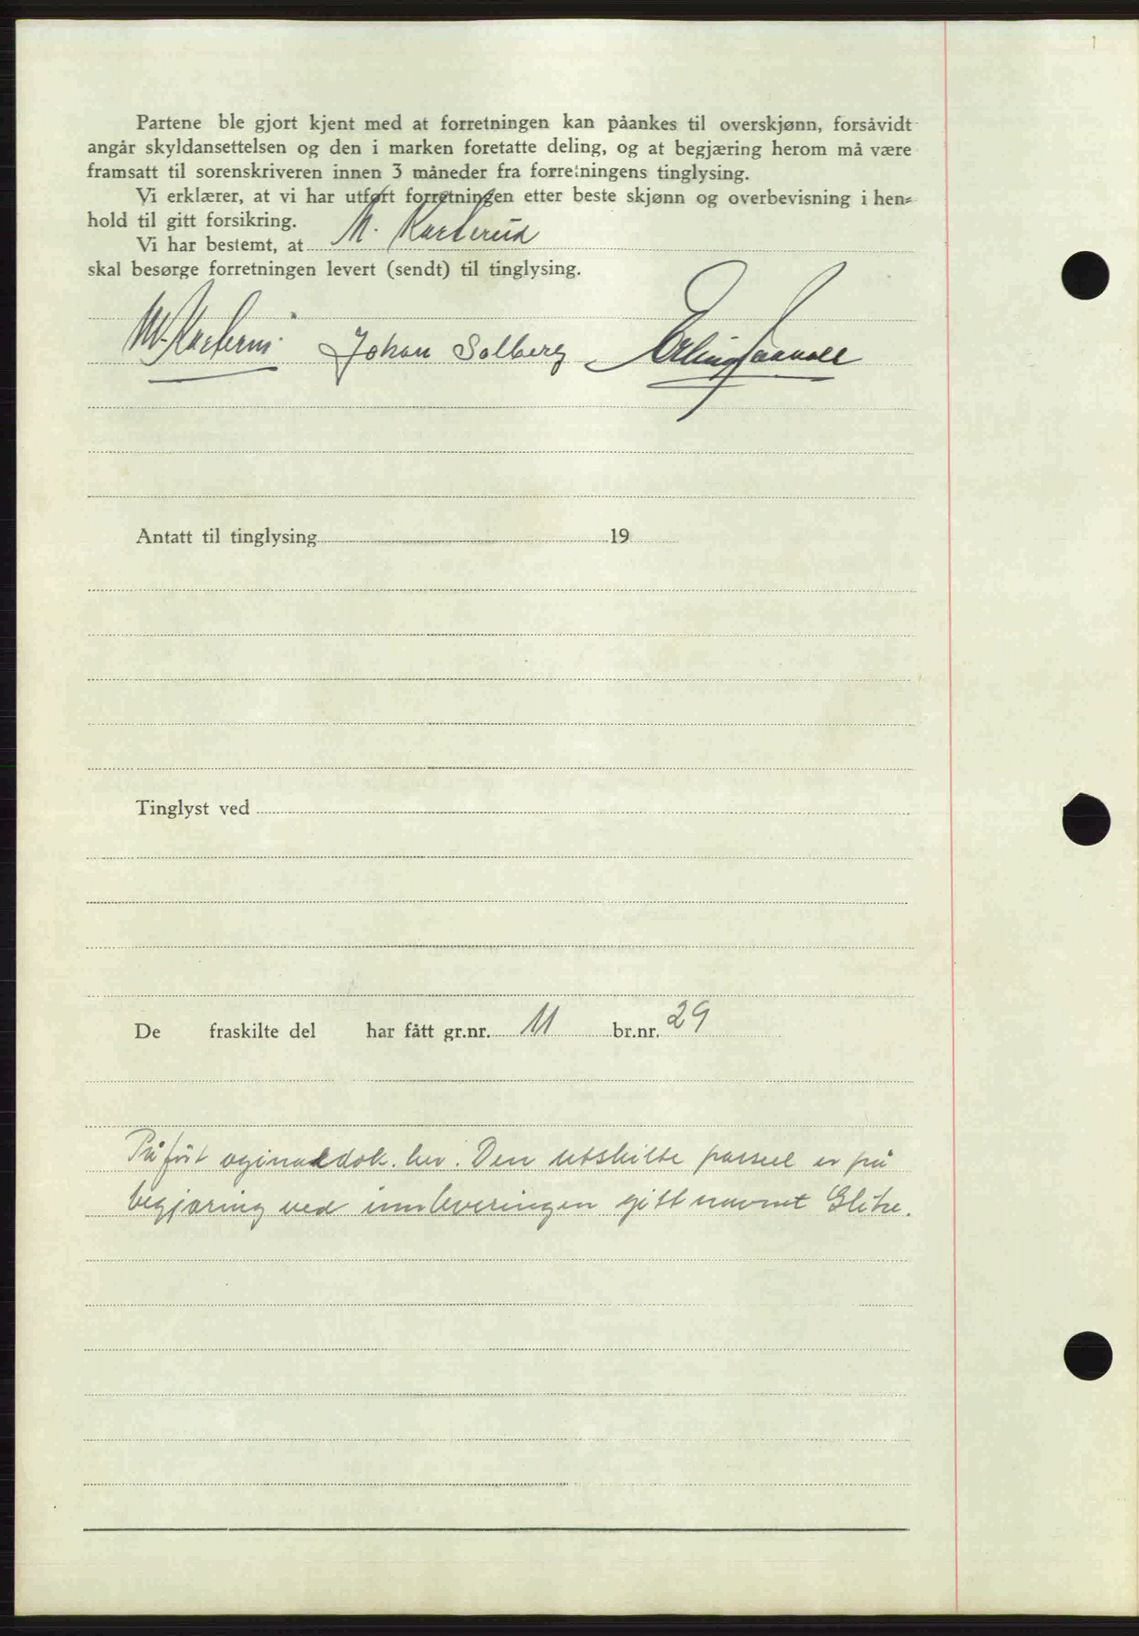 Partene ble gjort kjent med at forretningen kan påankes til overskjønn, forsåvidt
angår skyldansettelsen og den i marken foretatte deling, og at begjæring herom må være
framsatt til sorenskriveren innen 3 måneder fra forretningens tinglysing.
Vi erklærer, at vi har utført forretningen etter beste skjønn og overbevisning i hen-
hold til gitt forsikring.
Vi har bestemt, at M. Karterud
skal besørge forretningen levert (sendt) til tinglysing.
M. Johan Solberg Erling
Antatt til tinglysing 19
Tinglyst ved
De fraskilte del har fått gr.nr. 11 br.nr. 29
Påført oginaldok. her. Den utskilte parsell er på
begjæring ved innleveringen gitt navnet Glitre.